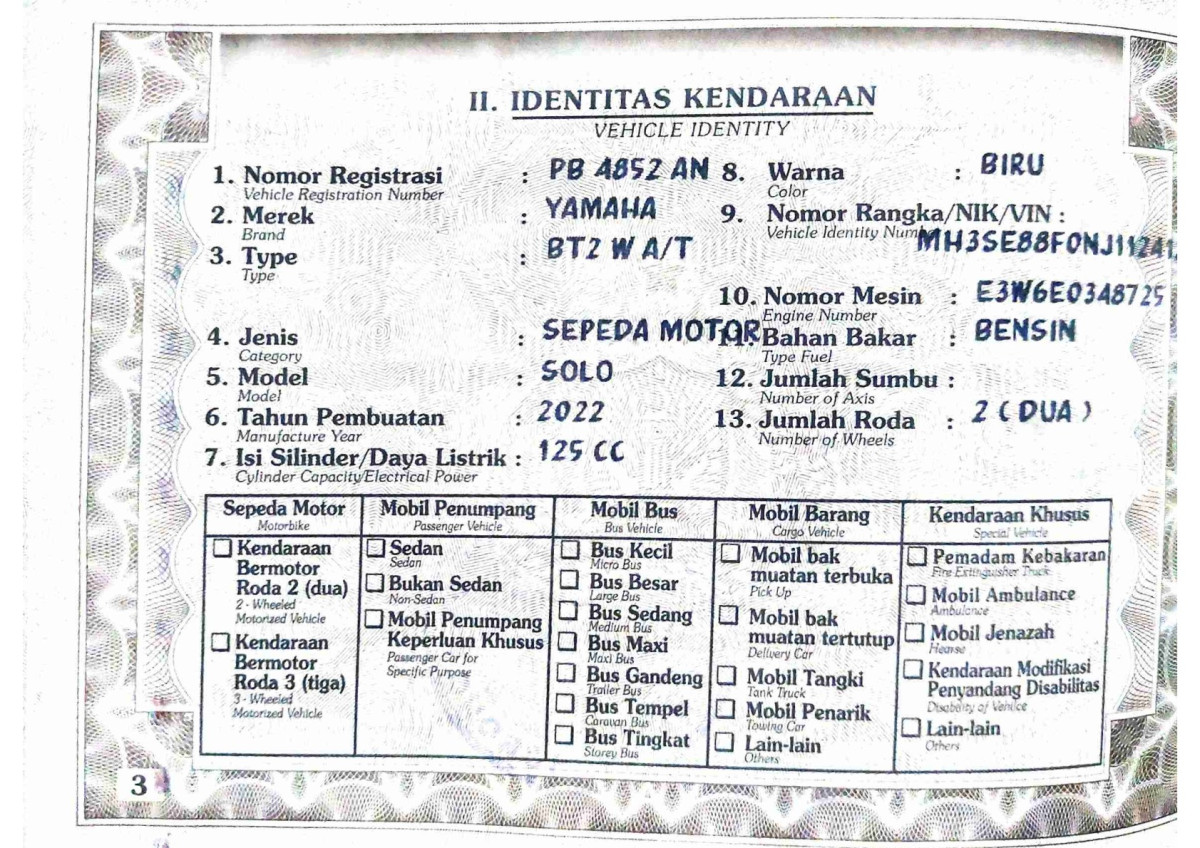 II. IDENTITAS KENDARAAN
VEHICLE IDENTITY
1. Nomor Registrasi : PB 4852 AN
Vehicle Registration Number
2. Merek : YAMAHA
Brand
3. Type : BT2 W A/T
Type
4. Jenis : SEPEDA MOTOR
Category
5. Model : SOLO
Model
6. Tahun Pembuatan : 2022
Manufacture Year
7. Isi Silinder/Daya Listrik : 125 CC
Cylinder Capacity/Electrical Power
8. Warna : BIRU
Color
9. Nomor Rangka/NIK/VIN :
Vehicle Identity Number
10. Nomor Mesin : E3W6E0348725
Engine Number
11. Bahan Bakar : BENSIN
Type Fuel
12. Jumlah Sumbu :
Number of Axis
13. Jumlah Roda : 2 ( DUA )
Number of Wheels
Sepeda Motor
Motorbike
Kendaraan
Bermotor
Roda 2 (dua)
2 - Wheeled
Motorized Vehicle
Kendaraan
Bermotor
Roda 3 (tiga)
3 - Wheeled
Motorized Vehicle
Mobil Penumpang
Passenger Vehicle
Sedan
Sedan
Bukan Sedan
Non-Sedan
Mobil Penumpang
Keperluan Khusus
Passenger Car for
Specific Purpose
Mobil Bus
Bus Vehicle
Bus Kecil
Micro Bus
Bus Besar
Large Bus
Bus Sedang
Medium Bus
Bus Maxi
Maxi Bus
Bus Gandeng
Trailer Bus
Bus Tempel
Caravan Bus
Bus Tingkat
Storey Bus
Mobil Barang
Cargo Vehicle
Mobil bak
muatan terbuka
Pick Up
Mobil bak
muatan tertutup
Delivery Car
Mobil Tangki
Tank Truck
Mobil Penarik
Towing Car
Lain-lain
Others
Kendaraan Khusus
Special Vehicle
Pemadam Kebakaran
Fire Extinguisher Truck
Mobil Ambulance
Ambulance
Mobil Jenazah
Hearse
Kendaraan Modifikasi
Penyandang Disabilitas
Lain-lain
Others
3